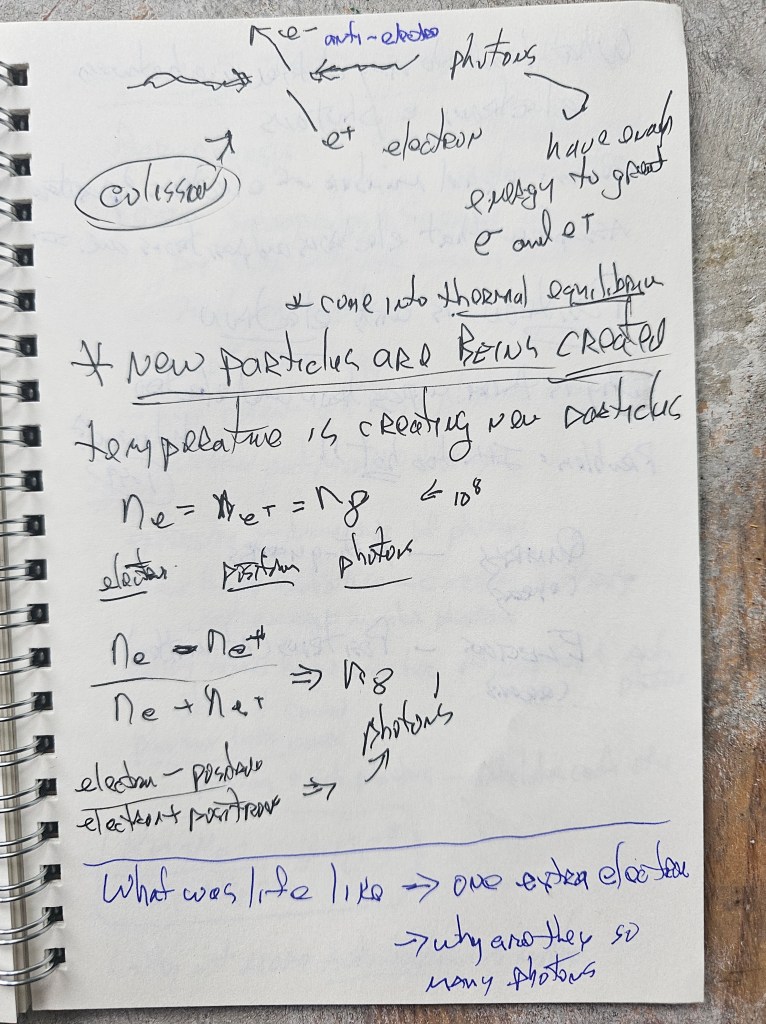 e- anti-electro
photons
e+ electron
have enough
energy to great
e- and e+
colission
* come into thermal equilibrium
* New particles are Being Created
temperative is creating new particles
ne = ne+ = n8 ← 10^8
electron positron photons
ne - ne+
ne + ne+ ⇒ n8
photons
electron - positron
electron + positron ⇒
What was life like → one extra electron
→ why are they so
many photons